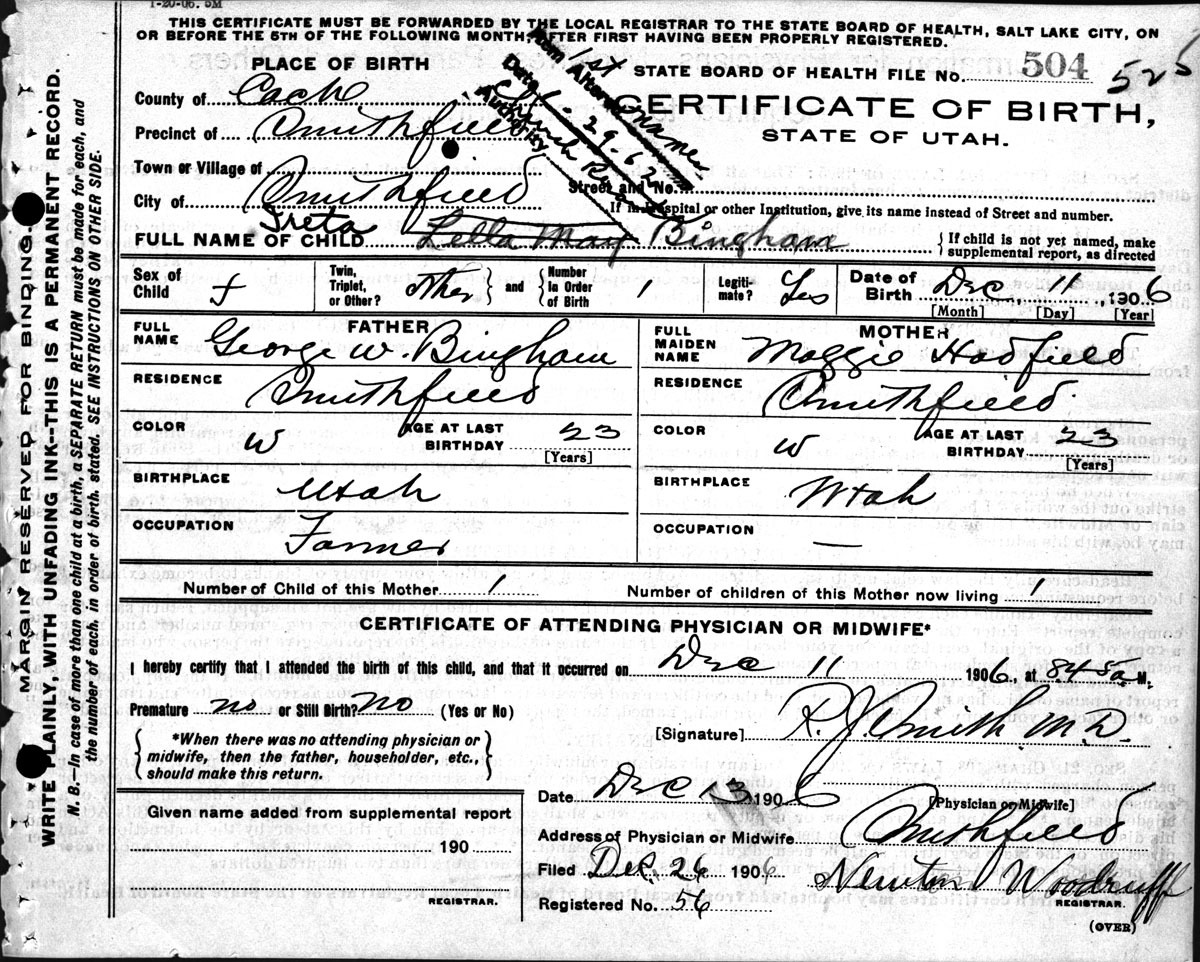 1-20-06. 5M
THIS CERTIFICATE MUST BE FORWARDED BY THE LOCAL REGISTRAR TO THE STATE BOARD OF HEALTH, SALT LAKE CITY, ON
OR BEFORE THE 5TH OF THE FOLLOWING MONTH, AFTER FIRST HAVING BEEN PROPERLY REGISTERED.
PLACE OF BIRTH
STATE BOARD OF HEALTH FILE No. 504 525
County of Cache
CERTIFICATE OF BIRTH,
STATE OF UTAH.
Precinct of Smithfield
Town or Village of
City of Smithfield
Street and No.
If in Hospital or other Institution, give its name instead of Street and number.
Item Altered 1st name
Date 1-29-62
Authority Church Rec
Treta
FULL NAME OF CHILD Lella May Bingham
{If child is not yet named, make supplemental report, as directed
Sex of Child f
Twin, Triplet, or Other? other } and { Number in Order of Birth 1
Legitimate? Yes
Date of Birth Dec 11, 1906
[Month] [Day] [Year]
FATHER
FULL NAME George W. Bingham
RESIDENCE Smithfield
COLOR W AGE AT LAST BIRTHDAY 23
[Years]
BIRTHPLACE Utah
OCCUPATION Farmer
MOTHER
FULL MAIDEN NAME Maggie Hadfield
RESIDENCE Smithfield
COLOR W AGE AT LAST BIRTHDAY 23
[Years]
BIRTHPLACE Utah
OCCUPATION —
Number of Child of this Mother 1
Number of children of this Mother now living 1
CERTIFICATE OF ATTENDING PHYSICIAN OR MIDWIFE*
I hereby certify that I attended the birth of this child, and that it occurred on Dec 11 1906, at 845a M.
Premature no or Still Birth? no (Yes or No)
{*When there was no attending physician or midwife, then the father, householder, etc., should make this return.}
[Signature] R. J. Smith M.D.
[Physician or Midwife]
Date Dec 13 1906
Address of Physician or Midwife Smithfield
Given name added from supplemental report
190
REGISTRAR.
Filed Dec. 26 1906 Newton Woodruff
REGISTRAR.
Registered No. 56
(OVER)
MARGIN RESERVED FOR BINDING.
WRITE PLAINLY, WITH UNFADING INK--THIS IS A PERMANENT RECORD.
N. B.—In case of more than one child at a birth, a SEPARATE RETURN must be made for each, and
the number of each, in order of birth, stated. SEE INSTRUCTIONS ON OTHER SIDE.